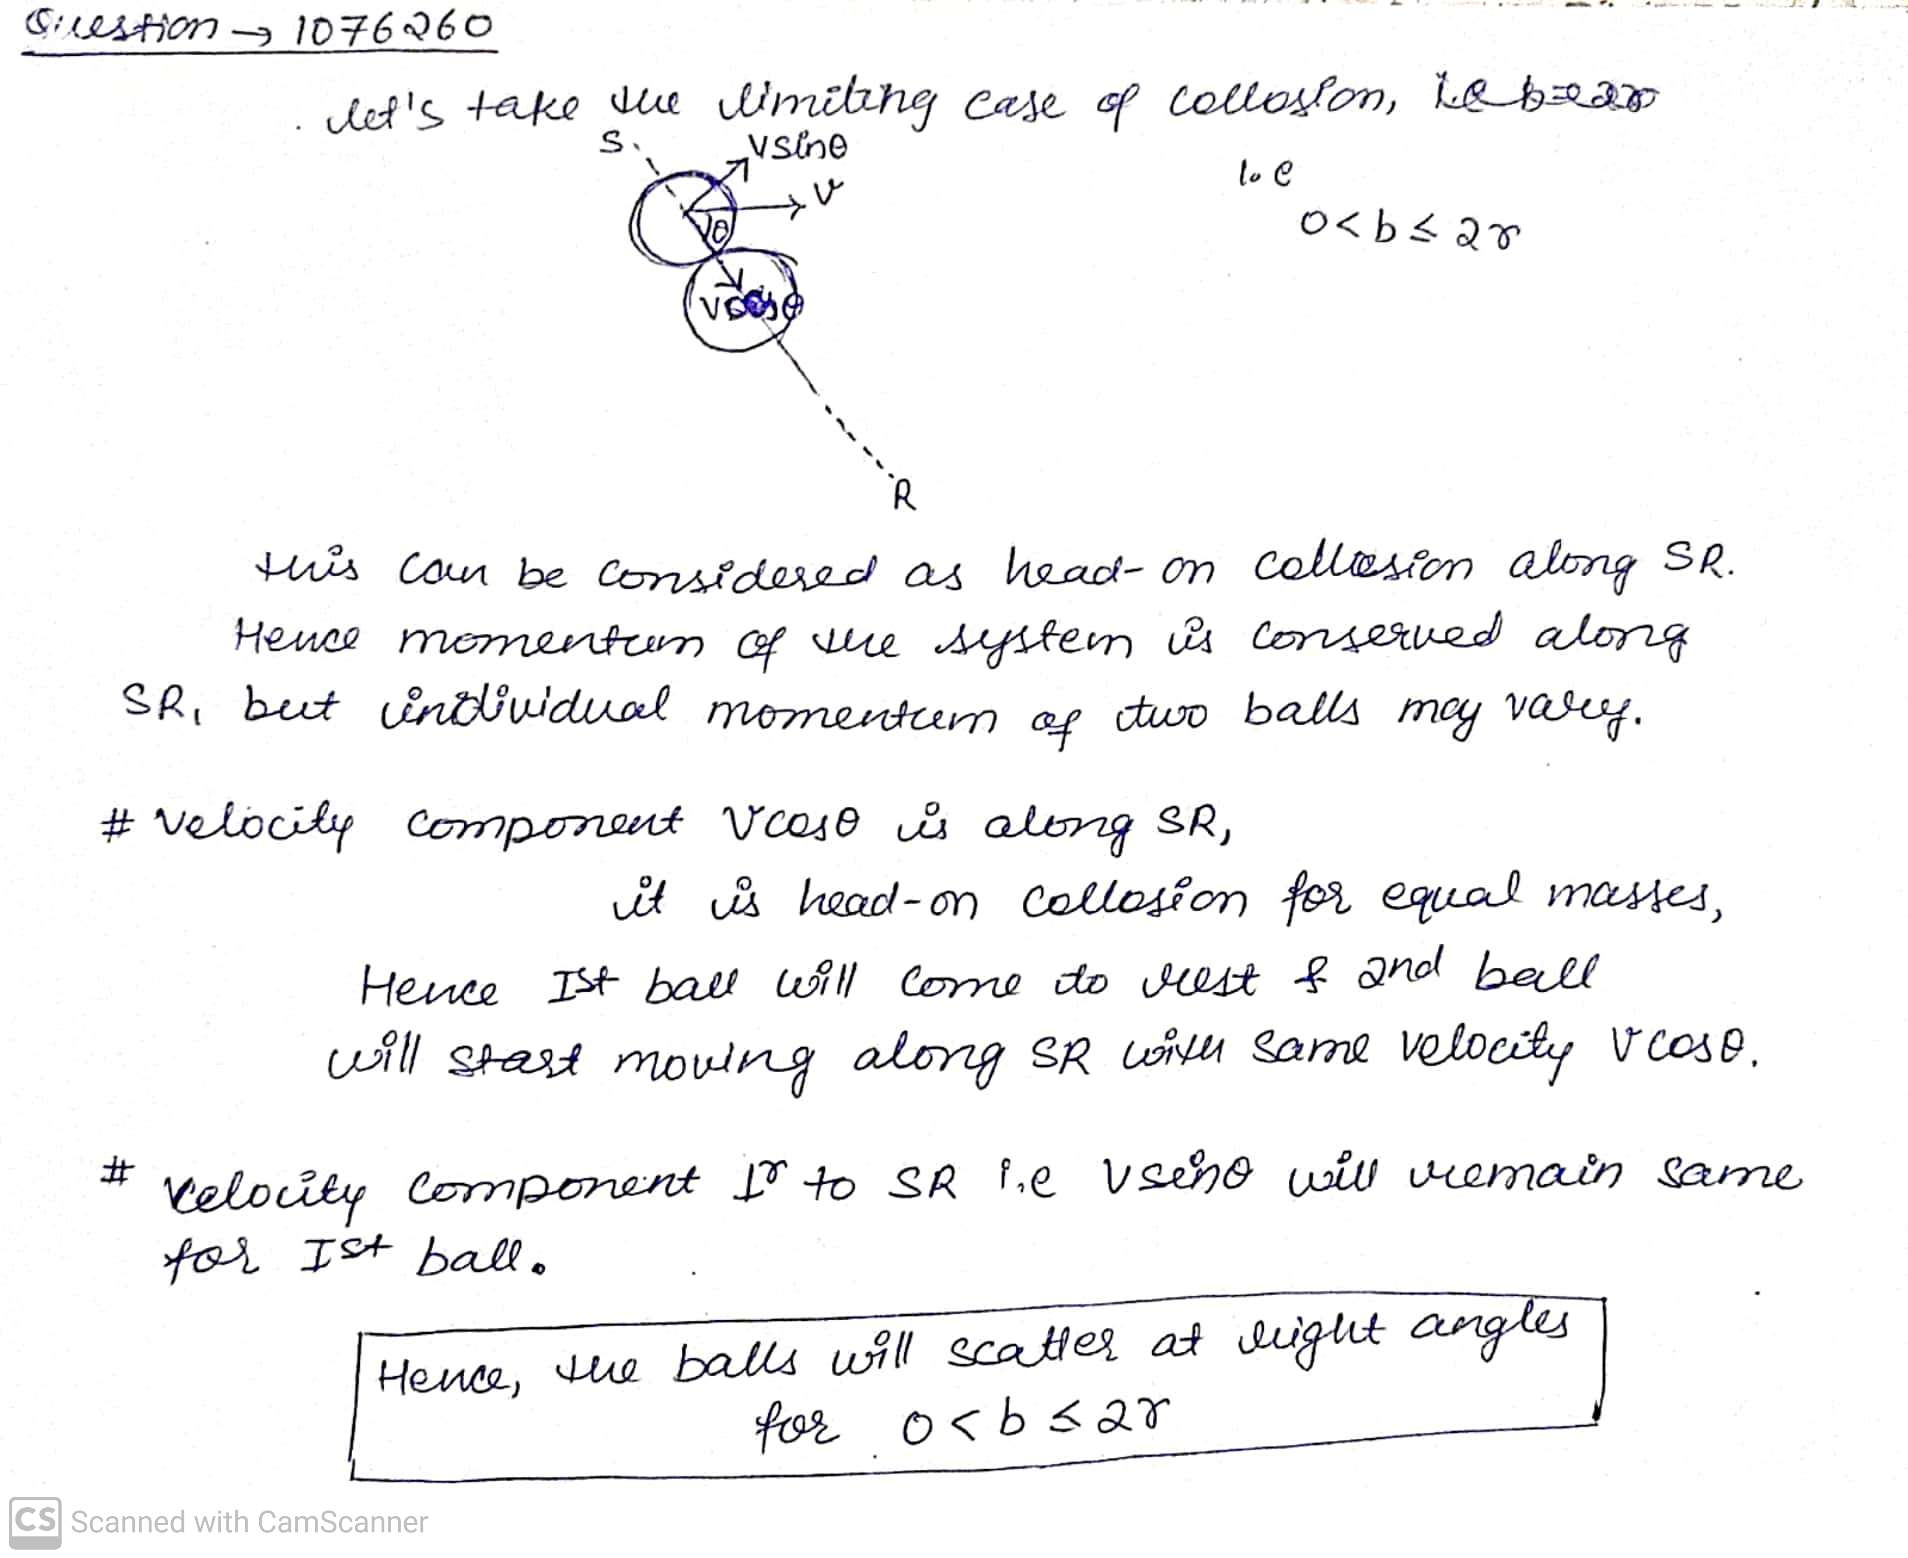 Question → 1076260
. let's take the limiting case of collosion,
S. vsinθ
v
i.e
0<b≤2r
θ
vcosθ
R
this can be considered as head-on collision along SR.
Hence momentum of the system is conserved along
SR, but individual momentum of two balls may vary.
# velocity component vcosθ is along SR,
it is head-on collosion for equal masses,
Hence Ist ball will come to rest & 2nd ball
will start moving along SR with same velocity vcosθ.
# velocity component ⊥r to SR i.e vsinθ will remain same
for Ist ball.
Hence, the balls will scatter at right angles
for 0<b≤2r
CS Scanned with CamScanner